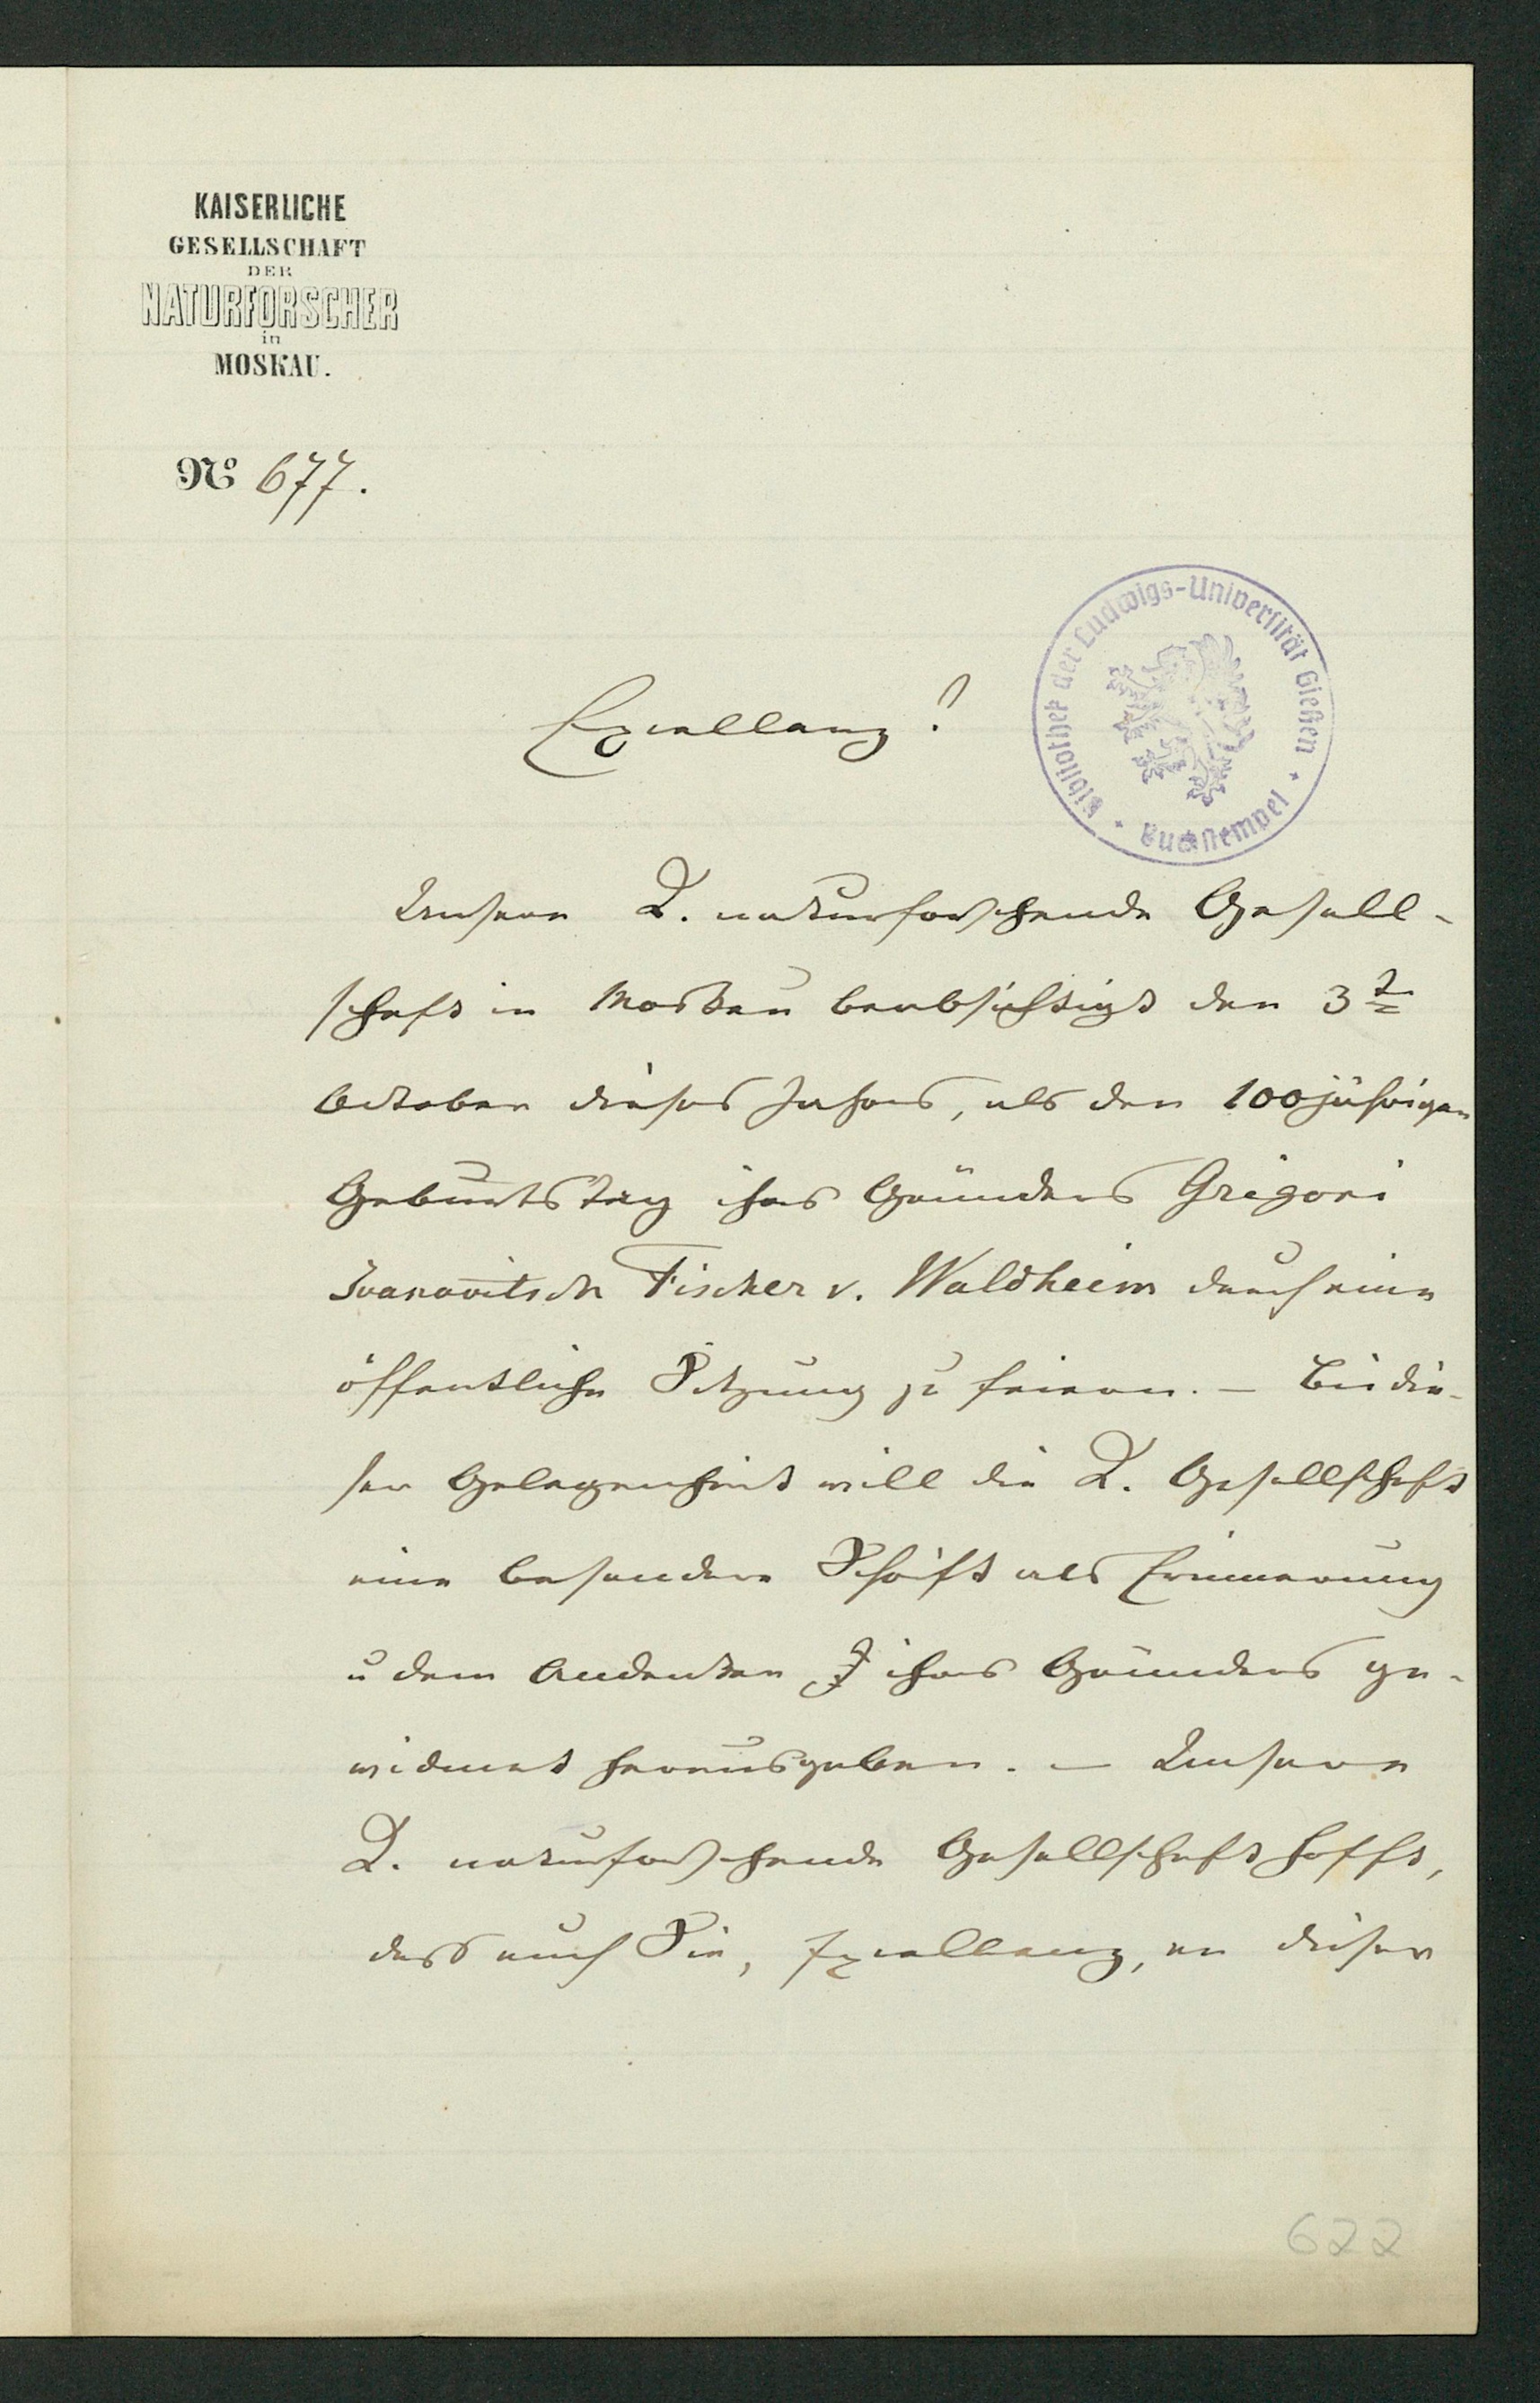 KAISERLICHE
GESELLSCHAFT
DER
NATURFORSCHER
in
MOSKAU.
No 677.
Bibliothek der Ludwigs-Universität Gießen
Buchstempel
Excellenz!
Unsere K. naturforschende Gesell-
schaft in Moskau beabsichtigt den 3t
October dieses Jahres, als den 100jährigen
Geburtstag ihres Gründers Grigori
Ivanovitsch Fischer v. Waldheim durch eine
öffentliche Sitzung zu feiern. – Bei die-
ser Gelegenheit will die K. Gesellschaft
eine besondere Schrift als Erinnerung
u dem Andenken ihres Gründers ge-
widmet herausgeben. – Unsere
K. naturforschende Gesellschaft hofft,
dass auch Sie, Excellenz, an dieser
622